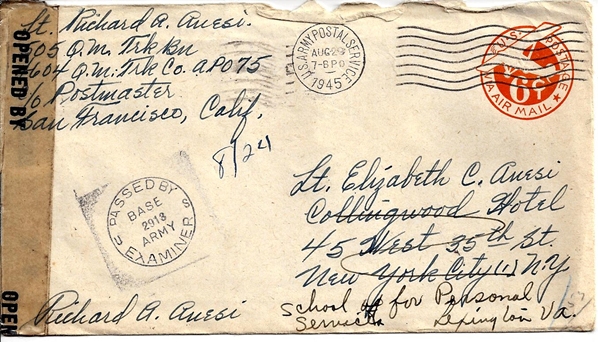 Lt. Richard A. Anesi.
505 Q.M. Trk Bn
3604 Q.M. Trk Co. APO 75
c/o Postmaster
San Francisco, Calif.
8/24
OPENED BY
OPEN
U.S. ARMY POSTAL SERVICE
AUG 25
7-8 PO
1945
U.S. POSTAGE
6¢
VIA AIR MAIL
PASSED BY
BASE
2918
ARMY
EXAMINER
U S
Lt. Elizabeth C. Anesi
Collingwood Hotel
45 West 35th St.
New York City (1) N.Y.
School for Personal
Services Lexington Va.
Richard A. Anesi